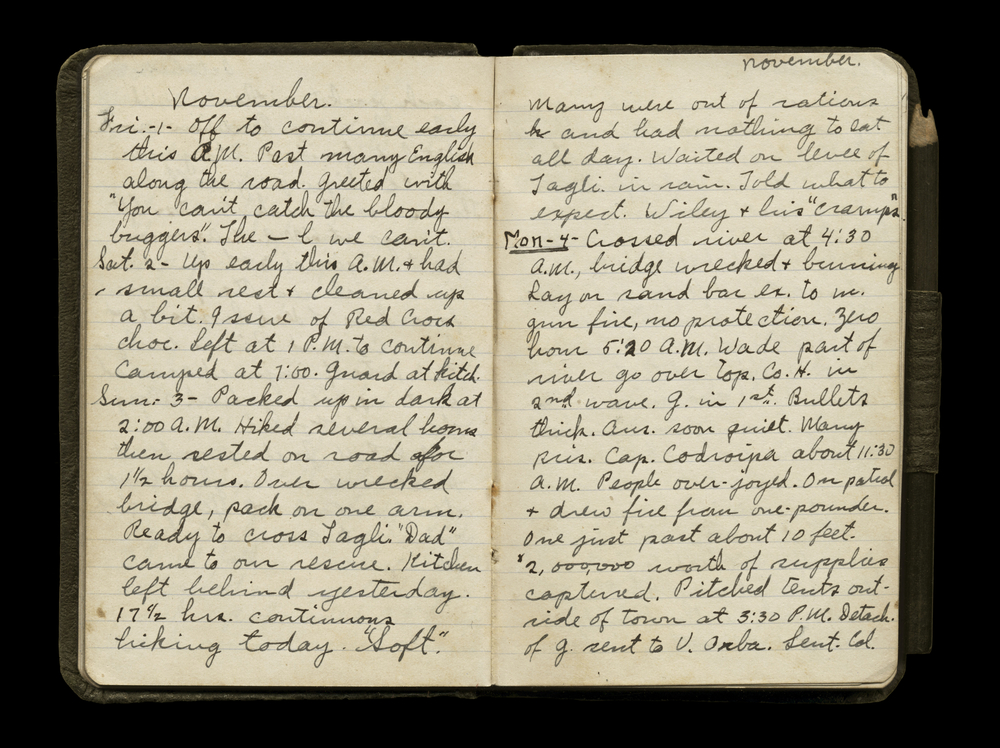 November.
Fri.-1- Off to continue early
this A.M. Past many English
along the road. Greeted with
"You can't catch the bloody
buggers". The — l we can't.
Sat. 2- Up early this A.M. & had
small rest & cleaned up
a bit. Issue of Red Cross
choc. Left at 1 P.M. to continue
Camped at 7:00. Guard at kitch.
Sun. 3- Packed up in dark at
2:00 A.M. Hiked several hours
then rested on road for
1½ hours. Over wrecked
bridge, pack on one arm.
Ready to cross Tagli. "Dad"
came to our rescue. Kitchen
left behind yesterday.
17½ hrs. continuous
hiking today. "Soft".
November.
Many were out of rations
and had nothing to eat
all day. Waited on levee of
Tagli. in rain. Told what to
expect. Wiley & his "cramps".
Mon-4- Crossed river at 4:30
A.M., bridge wrecked & burning
Lay on sand bar ex. to m.
gun fire, no protection. Zero
hour 5:20 A.M. Wade part of
river go over Top. Co. H. in
2nd wave. G. in 1st. Bullets
thick. Aus. soon quiet. Many
pris. Cap. Codroipa about 11:30
A.M. People over-joyed. On patrol
& drew fire from one-pounder.
One just past about 10 feet.
$2,000,000 worth of supplies
captured. Pitched tents out-
side of town at 3:30 P.M. Detach.
of G. sent to V. Orba. Lent. Col.